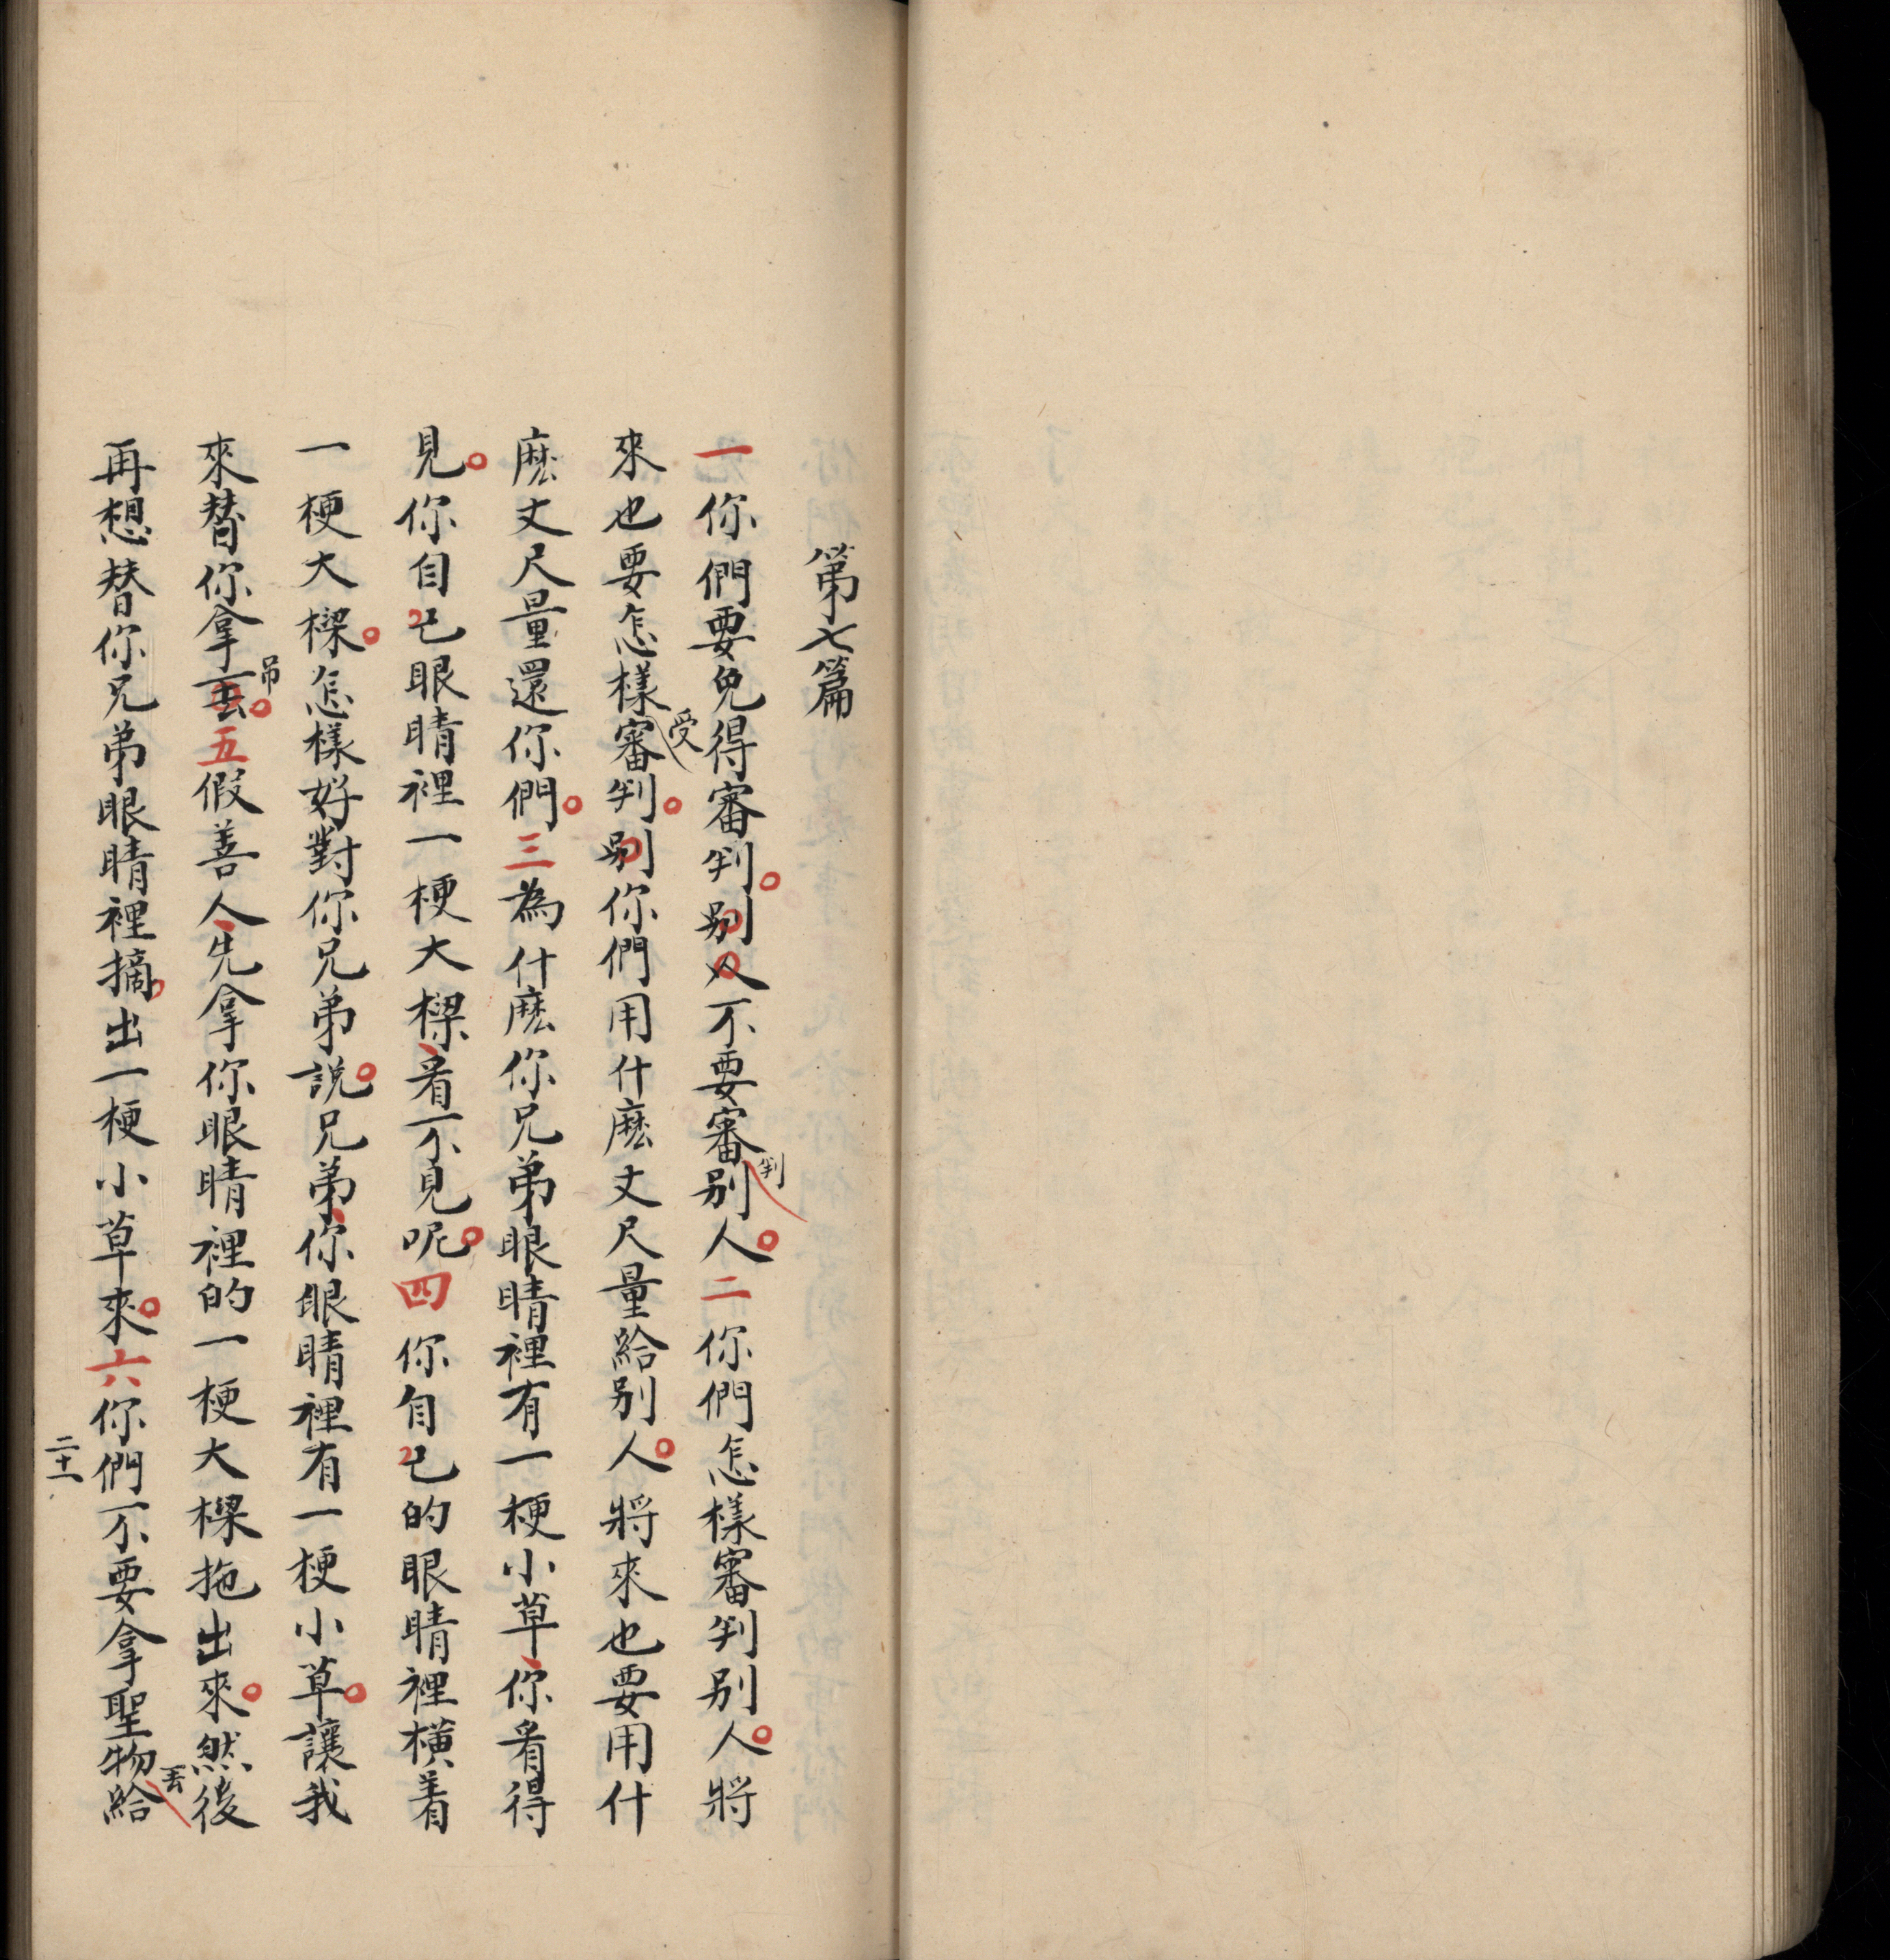 第七篇
一你們要免得審判。別人不要審判別人。二你們怎樣審判別人。將
來也要怎樣受審判。別你們用什麽丈尺量給別人。將來也要用什
麽丈尺量還你們。三為什麽你兄弟眼睛裡有一梗小草、你看得
見。你自己眼睛裡一梗大樑、看不見呢。四你自己的眼睛裡橫着
一梗大樑。怎樣好對你兄弟說。兄弟、你眼睛裡有一梗小草。讓我
來替你拿丟吊。五假善人、先拿你眼睛裡的一梗大樑拖出來。然後
再想替你兄弟眼睛裡摘出一梗小草來。六你們不要拿聖物丟給
二十一